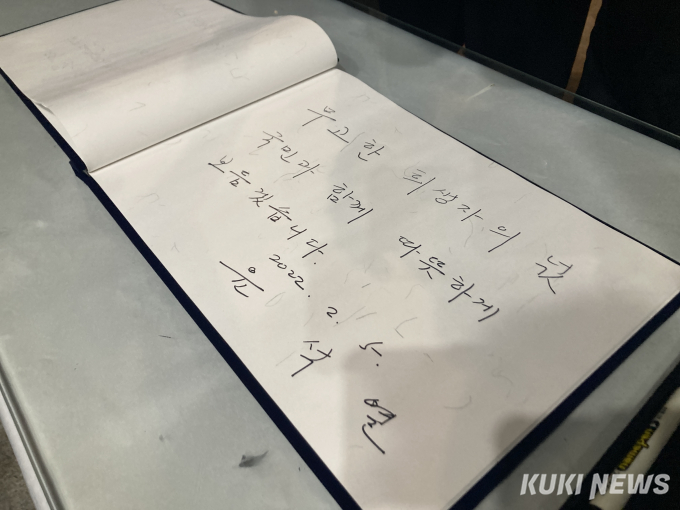 무고한 희생자의 넋
국민과 함께 따뜻하게
보듬겠습니다.
2022. 2. 5.
윤 석 열
KUKI NEWS